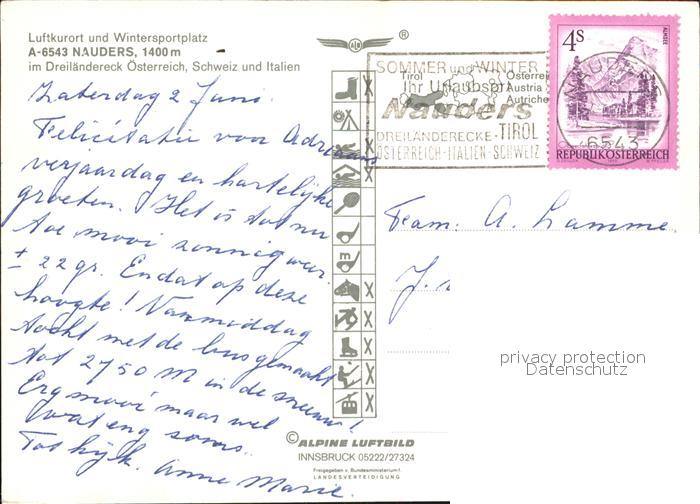 Luftkurort und Wintersportplatz
A-6543 NAUDERS, 1400 m
im Dreiländereck Österreich, Schweiz und Italien
Zaterdag 2 Juni.
Felicitatie voor Adriaans
verjaardag en hartelijke
groeten. Het is tot nu
toe mooi zonnig weer.
± 22 gr. En dat op deze
hoogte! Vanmiddag
tocht met de bus gemaakt
tot 2750 M in de sneeuw!
Erg mooi maar wel
wat eng soms.
Tot kijk. Anne Marie.
®
SOMMER und WINTER
Tirol
Ihr Urlaubsort
Nauders
DREILÄNDERECKE-TIROL
ÖSTERREICH-ITALIEN-SCHWEIZ
Austria
Autriche
4S
ALMSEE
6543
REPUBLIK ÖSTERREICH
Fam. A. Lamme
J.
privacy protection
Datenschutz
© ALPINE LUFTBILD
INNSBRUCK 05222/27324
Freigegeben v. Bundesministerium f.
LANDESVERTEIDIGUNG